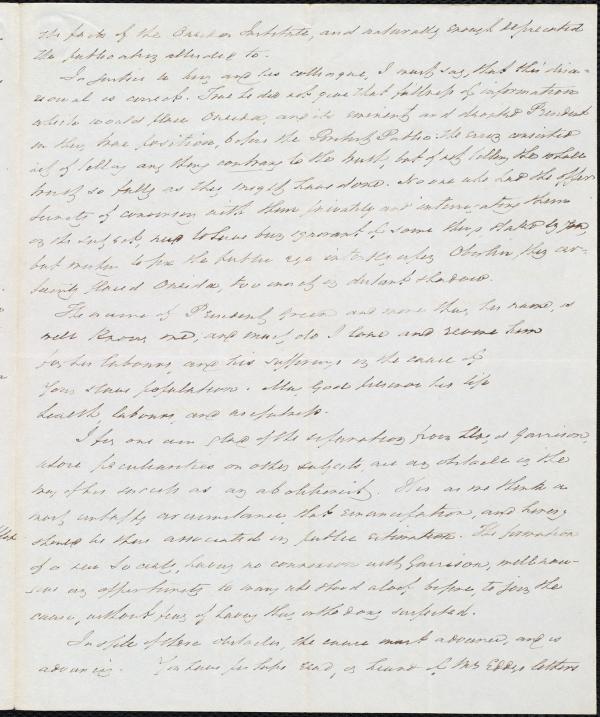 the facts of the Oneida Institute, and naturally enough deprecated
the publications alluded to.
In justice to him and his colleague, I must say, that this disa-
vowal is correct. True he did not give that fullness of information
which would place Oneida, and its eminent and devoted President
in their true position, before the British Public: the error consisted
not of telling any thing contrary to the truth, but of not telling the whole
truth so fully as they might have done. No one who had the oppor-
tunity of conversing with them privately and interrogating them
on the subject, need to have been ignorant of some things stated by you,
but wishing to fix the public eye intently upon Oberlin, they cer-
tainly placed Oneida, too much in distant shadow.
The name of President Green and more than his name, is
well known me, and much do I love and revere him
for his labours, and his sufferings in the cause of
your slave population. May God preserve his life
health labours, and usefulness.
I for one am glad of the separation from Garrison,
whose peculiarities on other subjects, are an obstacle in the
way of his success as an abolitionist. It is as we think a
most unhappy circumstance, that emancipation, and heresy
should be thus associated in public estimation. The formation
of a new Society, having no connexion with Garrison, will now
give an opportunity to many who stood aloof before, to join the
cause, without fear of having their orthodoxy suspected.
In spite of these obstacles, the cause must advance, and is
advancing. You have perhaps read, or heard of Mr Eddy's letters